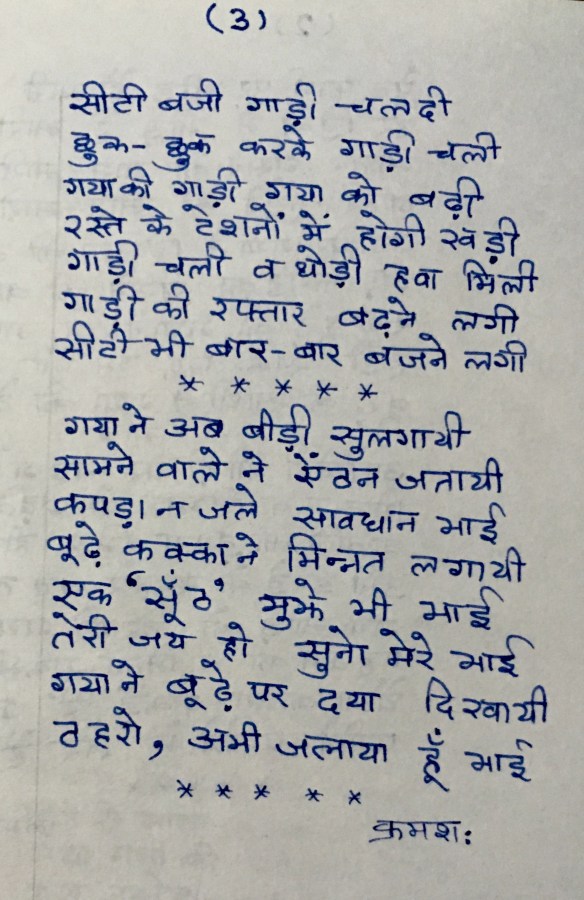 (3)
सीटी बजी गाड़ी चलदी
छुक-छुक करके गाड़ी चली
गया की गाड़ी गया को बढ़ी
रस्ते के टेशनों में होगी खड़ी
गाड़ी चली व थोड़ी हवा मिली
गाड़ी की रफ्तार बढ़ने लगी
सीटी भी बार-बार बजने लगी
* * * * *
गया ने अब बीड़ी सुलगायी
सामने वाले ने ऐंठन जतायी
कपड़ा न जले सावधान भाई
बूढ़े कक्का ने मिन्नत लगायी
एक ‘सूँठ’ मुझे भी भाई
तेरी जय हो सुनो मेरे भाई
गया ने बूढ़े पर दया दिखायी
ठहरो, अभी जलाया हूँ भाई
* * * * *
क्रमश: